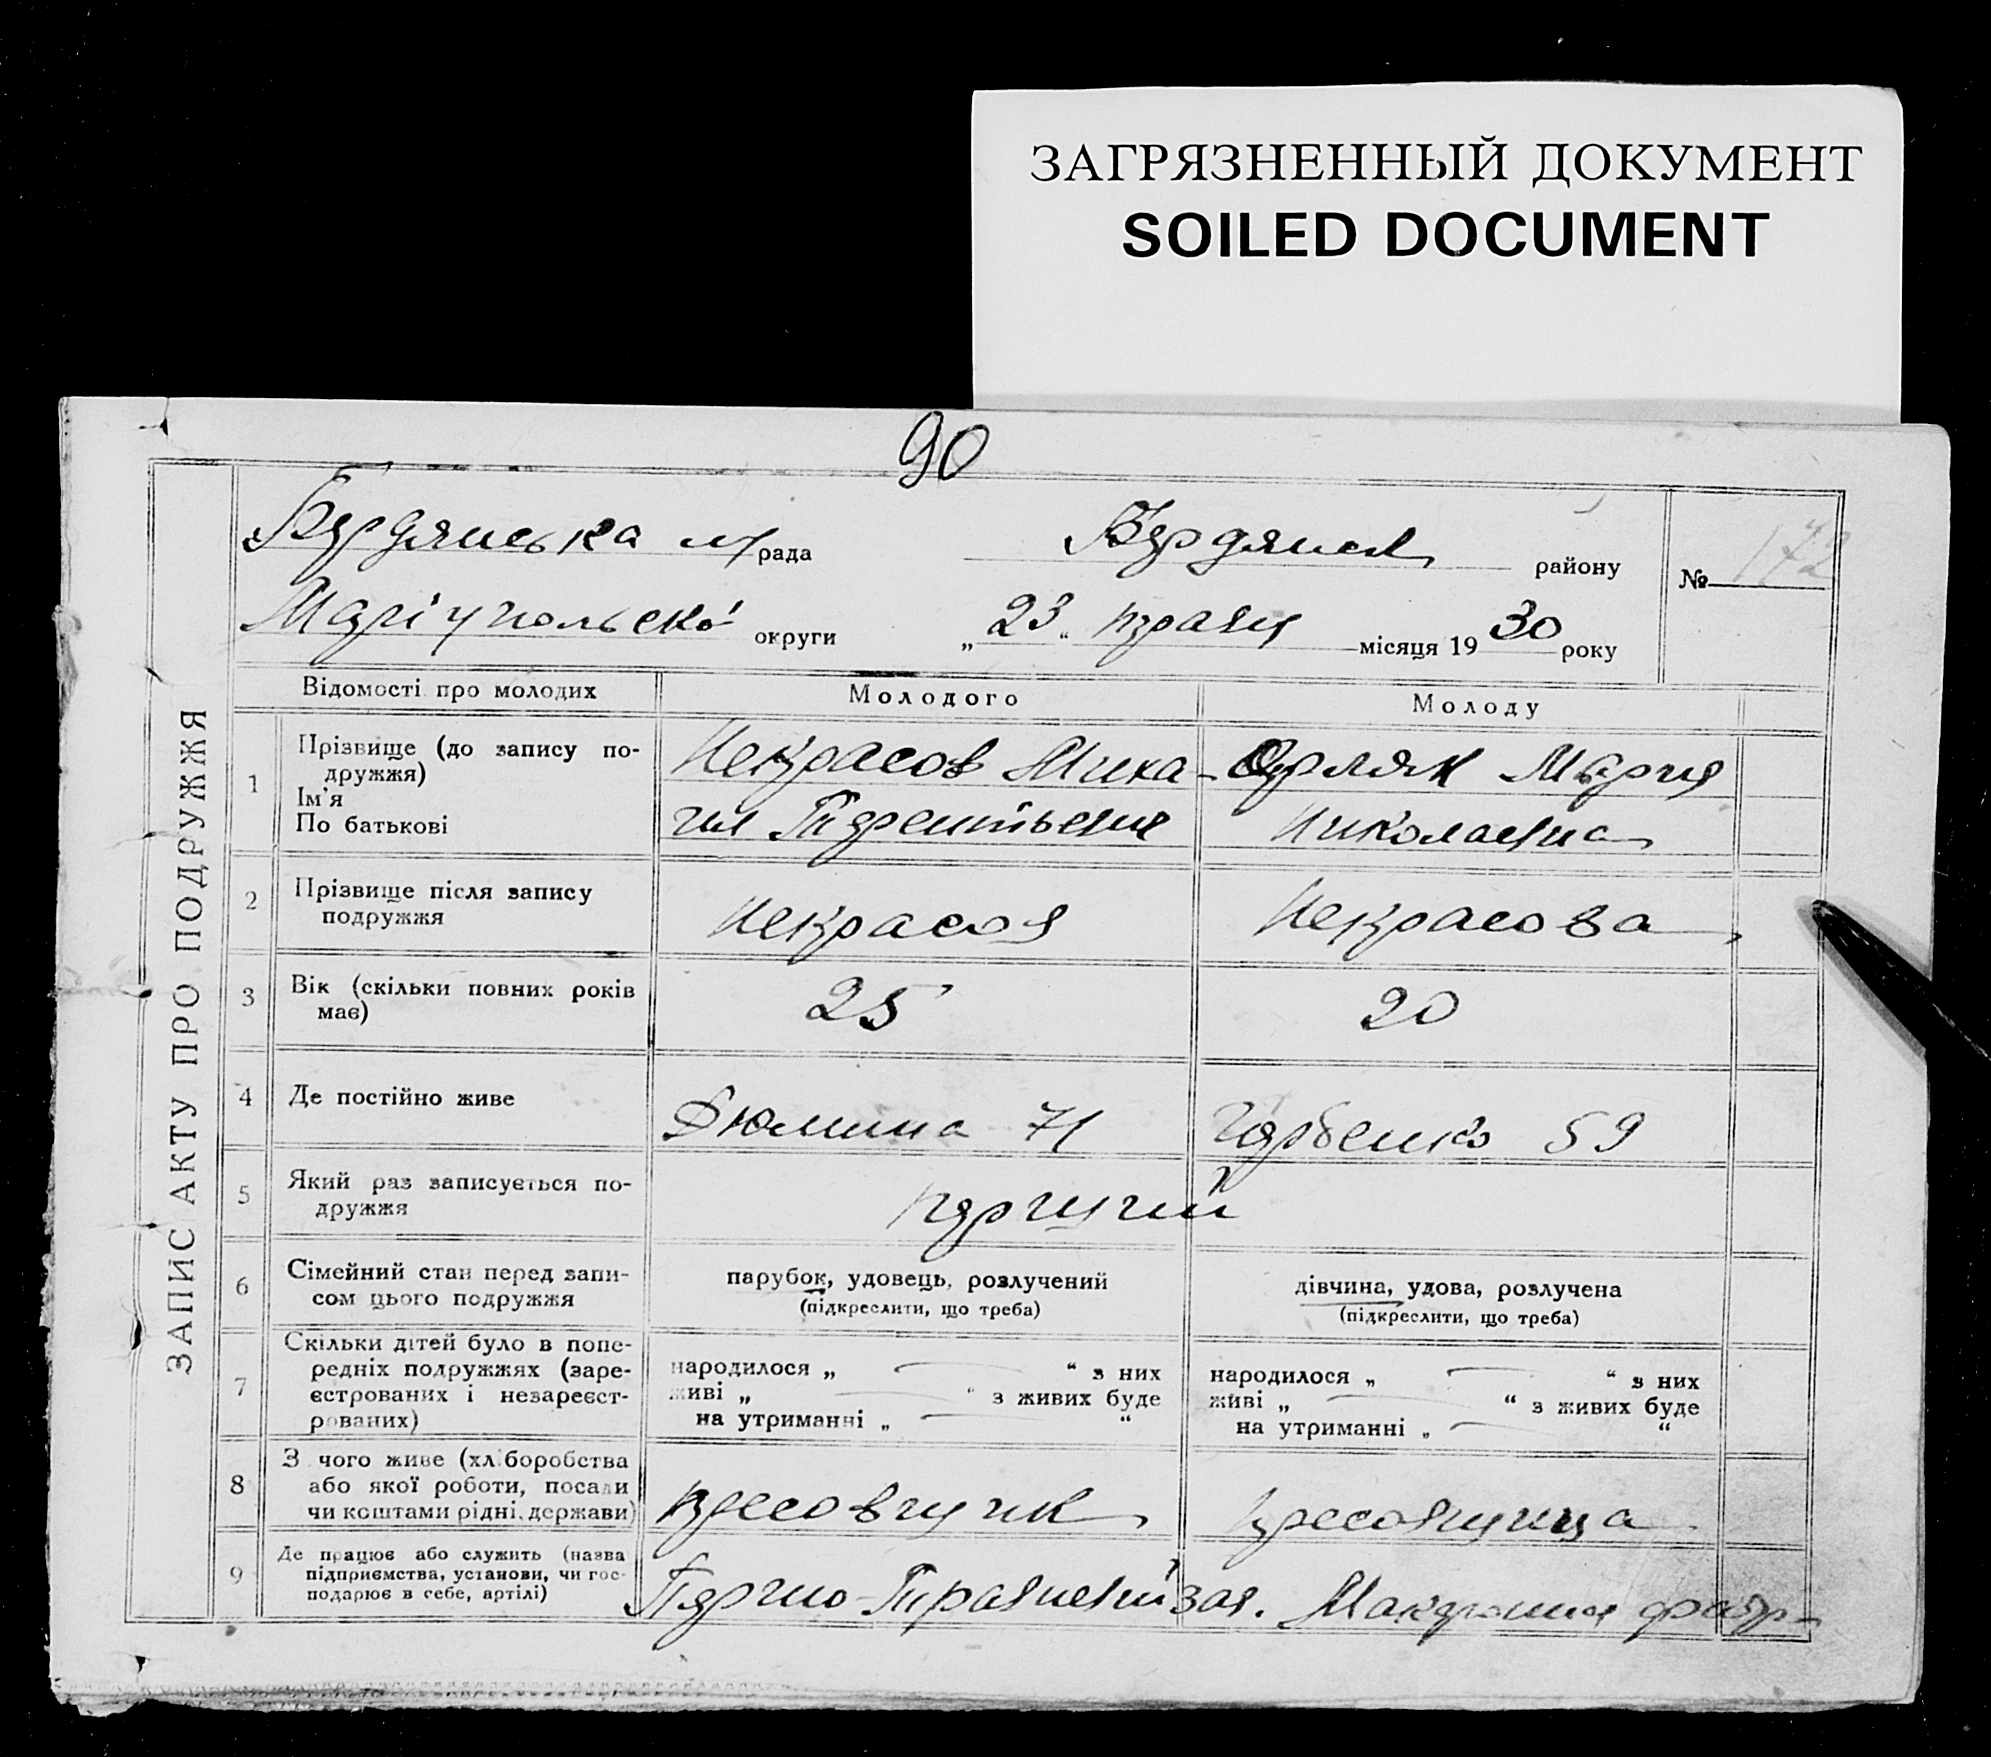 ЗАГРЯЗНЕННЫЙ ДОКУМЕНТ
SOILED DOCUMENT
90
Бердянська м/рада Бердянськ району № 172
Маріупольської округи „23“ травня місяця 1930 року
ЗАПИС АКТУ ПРО ПОДРУЖЖЯ
Відомості про молодих Молодого Молоду
1 Прізвище (до запису по-
дружжя)
Ім'я
По батькові
Некрасов Миха-
ил Терентьевич
Орляк Мария
Николаевна
2 Прізвище після запису
подружжя
Некрасов Некрасова
3 Вік (скільки повних років
має)
25 20
4 Де постійно живе Дюмина 71 Горбенко 59
5 Який раз записується по-
дружжя
первий
6 Сімейний стан перед запи-
сом цього подружжя
парубок, удовець, розлучений
(підкреслити, що треба)
дівчина, удова, розлучена
(підкреслити, що треба)
7 Скільки дітей було в попе-
редніх подружжях (заре-
єстрованих і незареєст-
рованих)
народилося „ “ з них
живі „ “ з живих буде
на утриманні „ “
народилося „ “ з них
живі „ “ з живих буде
на утриманні „ “
8 З чого живе (хліборобства
або якої роботи, посади
чи коштами рідні, держави)
пресовщик пресовщица
9 Де працює або служить (назва
підприємства, установи, чи гос-
подарює в себе, артілі)
Первомайский зав. фабр-